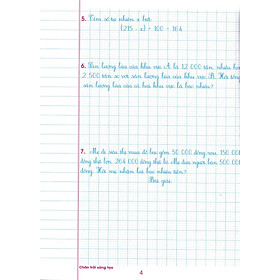 5. Tìm số tự nhiên x biết:
(215 - x) + 100 = 164
6. Sản lượng lúa của khu vực A là 12 000 tấn, nhiều hơn
2 500 tấn so với sản lượng lúa của khu vực B. Hỏi tổng
sản lượng lúa của cả hai khu vực là bao nhiêu?
7. Mẹ đi siêu thị mua đồ bao gồm 50 000 đồng rau, 150 000
đồng thịt lợn, 204 000 đồng thịt bò. Mẹ đưa người bán 500 000
đồng. Hỏi mẹ nhận lại bao nhiêu tiền?
Bài giải
Chân trời sáng tạo
4